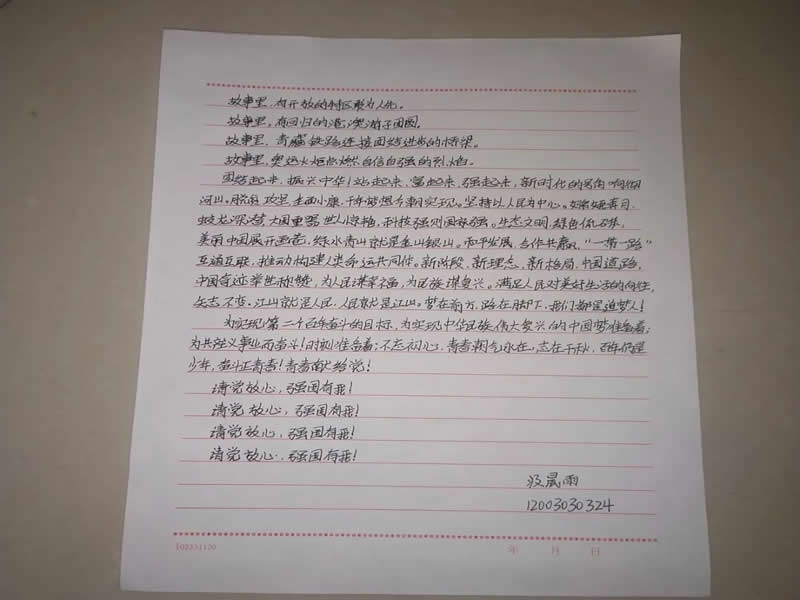 故事里,有开放的特区敢为人先。
故事里,有回归的港澳游子团圆。
故事里,青藏铁路连接团结进步的桥梁。
故事里,奥运火炬点燃自信自强的烈焰。
团结起来,振兴中华!站起来、富起来、强起来,新时代的号角响彻
河山。脱贫攻坚,全面小康,千年梦想今朝实现。坚持以人民为中心。嫦娥奔月、
蛟龙深潜,大国重器世人惊艳,科技强则国家强。生态文明,绿色低碳,
美丽中国展开画卷,绿水青山就是金山银山。和平发展,合作共赢,“一带一路”
互通互联,推动构建人类命运共同体。新阶段、新理念、新格局,中国道路,
中国奇迹举世称赞,为人民谋幸福,为民族谋复兴。满足人民对美好生活的向往,
矢志不变,江山就是人民,人民就是江山。梦在前方,路在脚下,我们都是追梦人!
为实现第二个百年奋斗的目标,为实现中华民族伟大复兴的中国梦准备着;
为共产主义事业而奋斗!时刻准备着;不忘初心,青春朝气永在,志在千秋,百年仍是
少年,奋斗正青春!青春献给党!
请党放心,强国有我!
请党放心,强国有我!
请党放心,强国有我!
请党放心,强国有我!
晟雨
12003030324
年 月 日